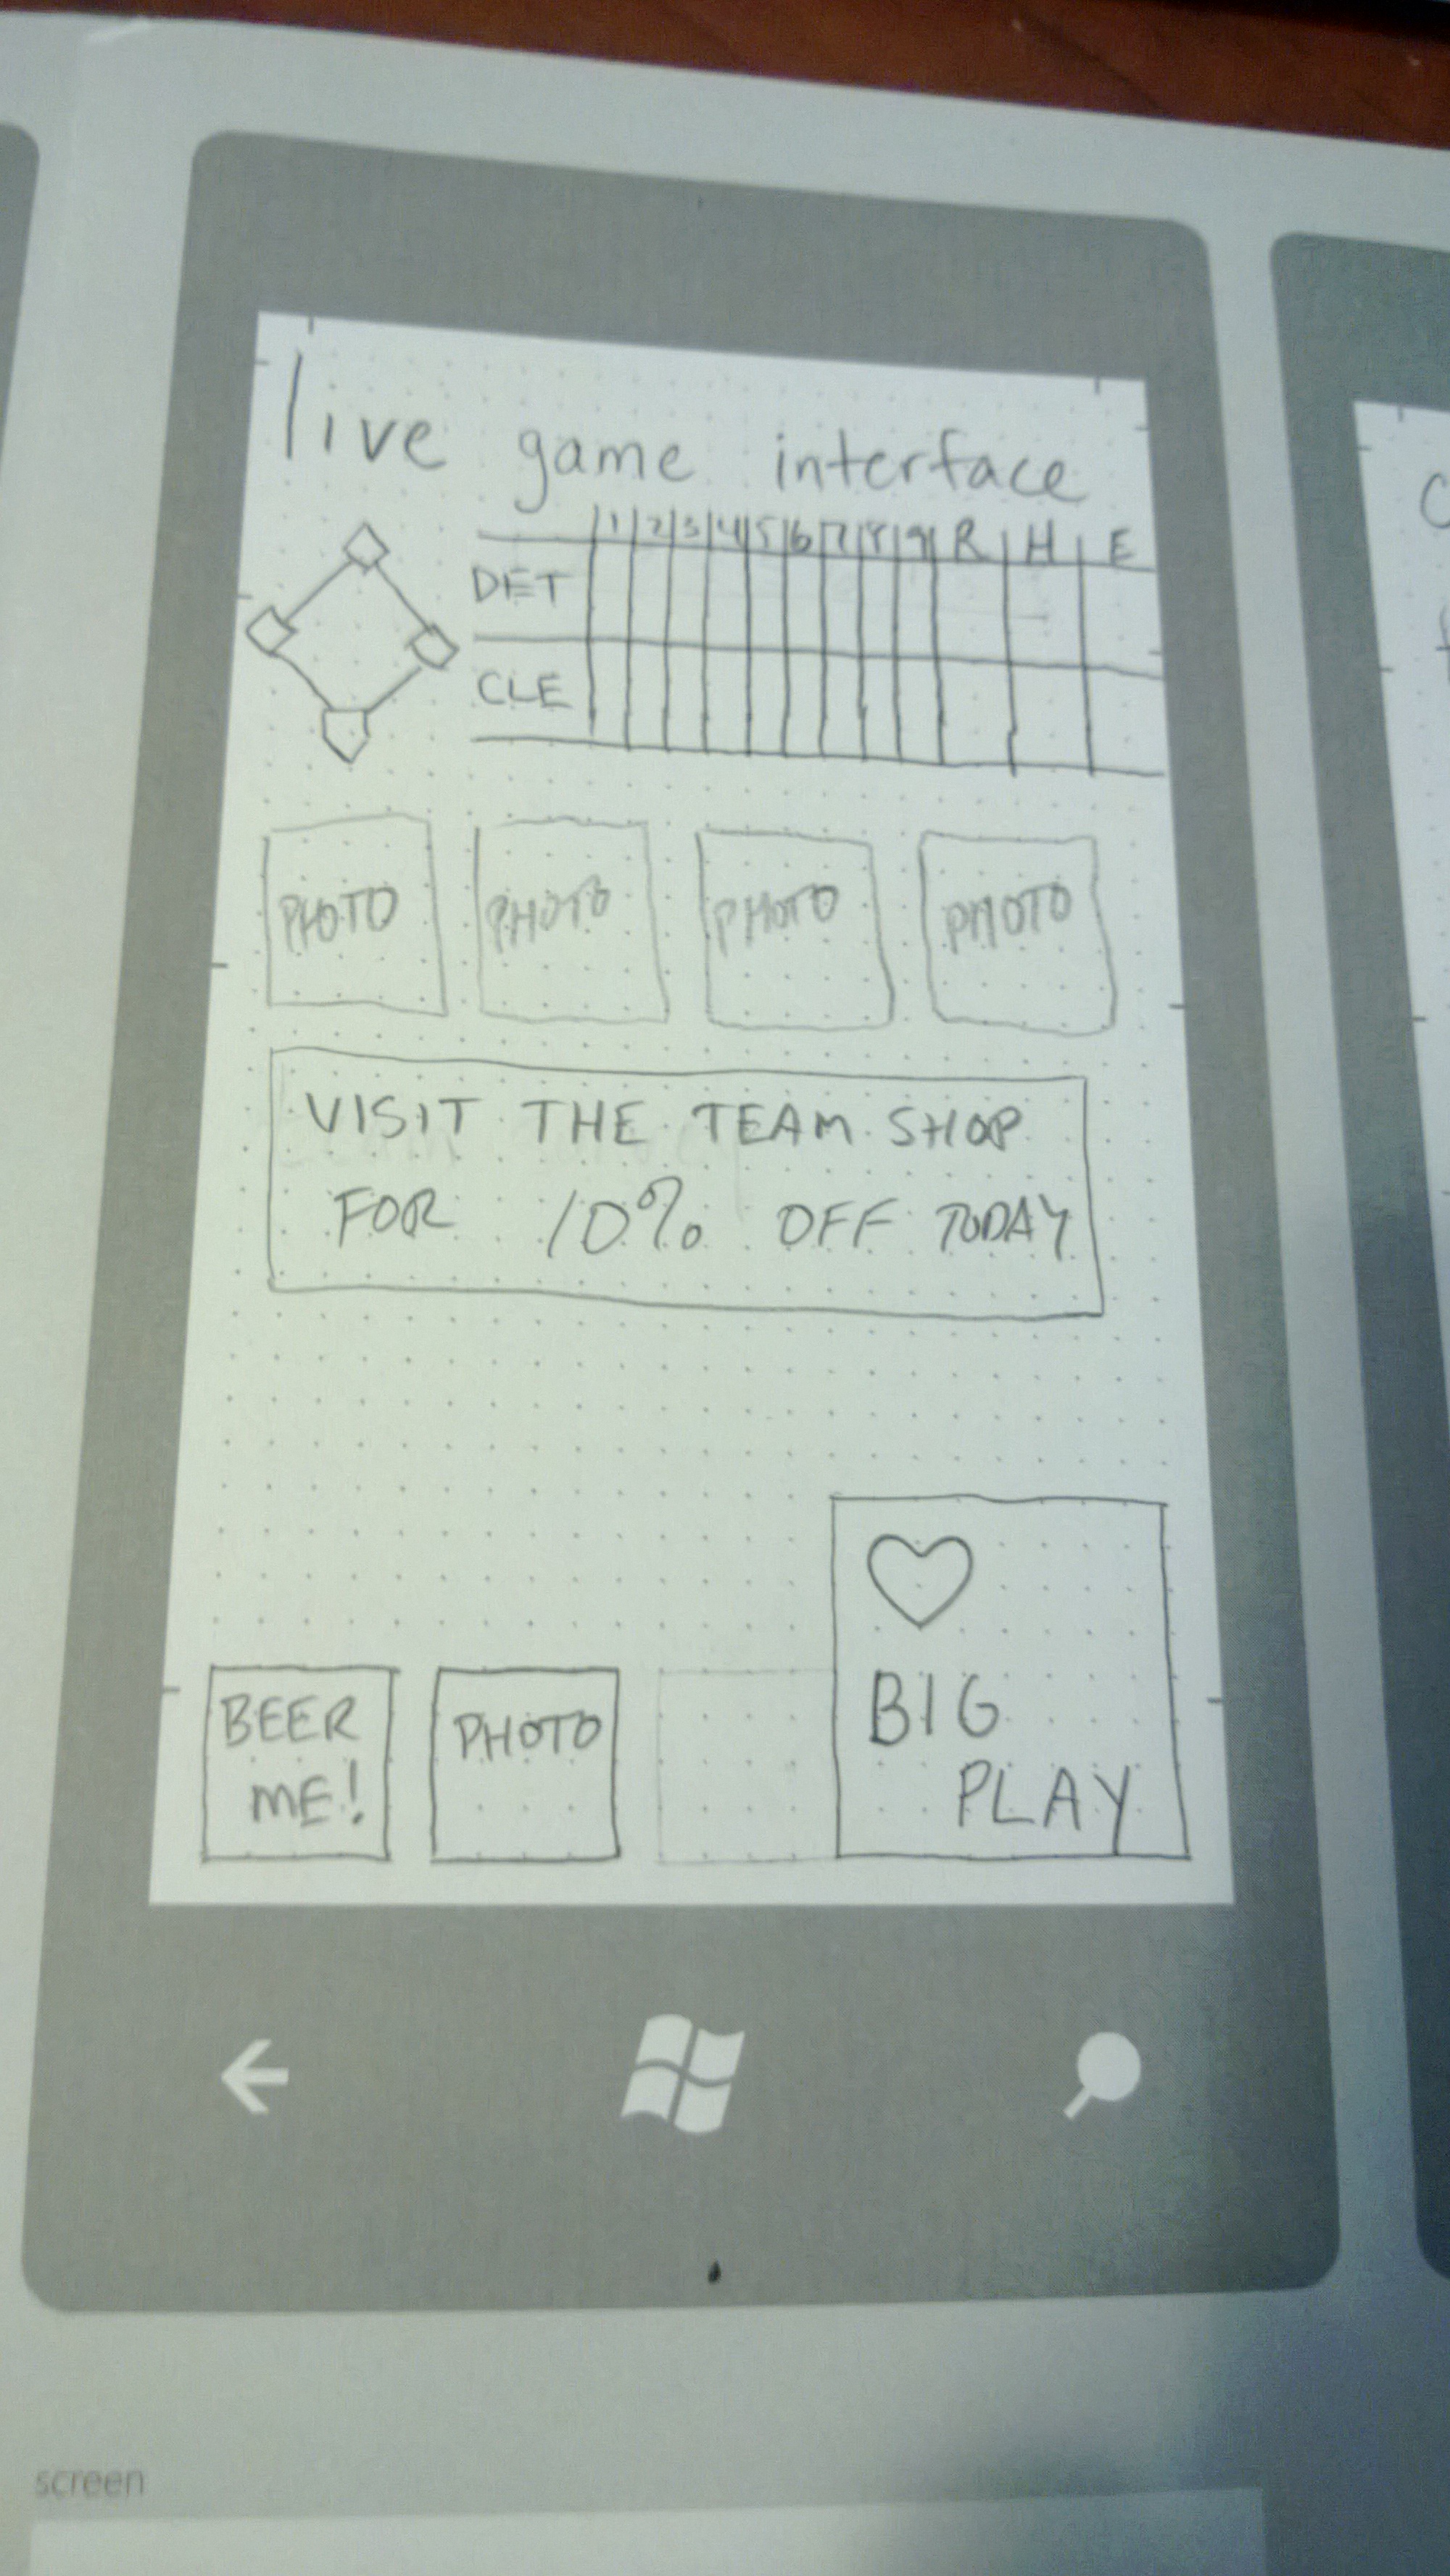 live game interface
1 2 3 4 5 6 7 8 9 R H E
DET
CLE
PHOTO PHOTO PHOTO PHOTO
VISIT THE TEAM SHOP
FOR 10% OFF TODAY
BEER
ME!
PHOTO
BIG
PLAY
screen